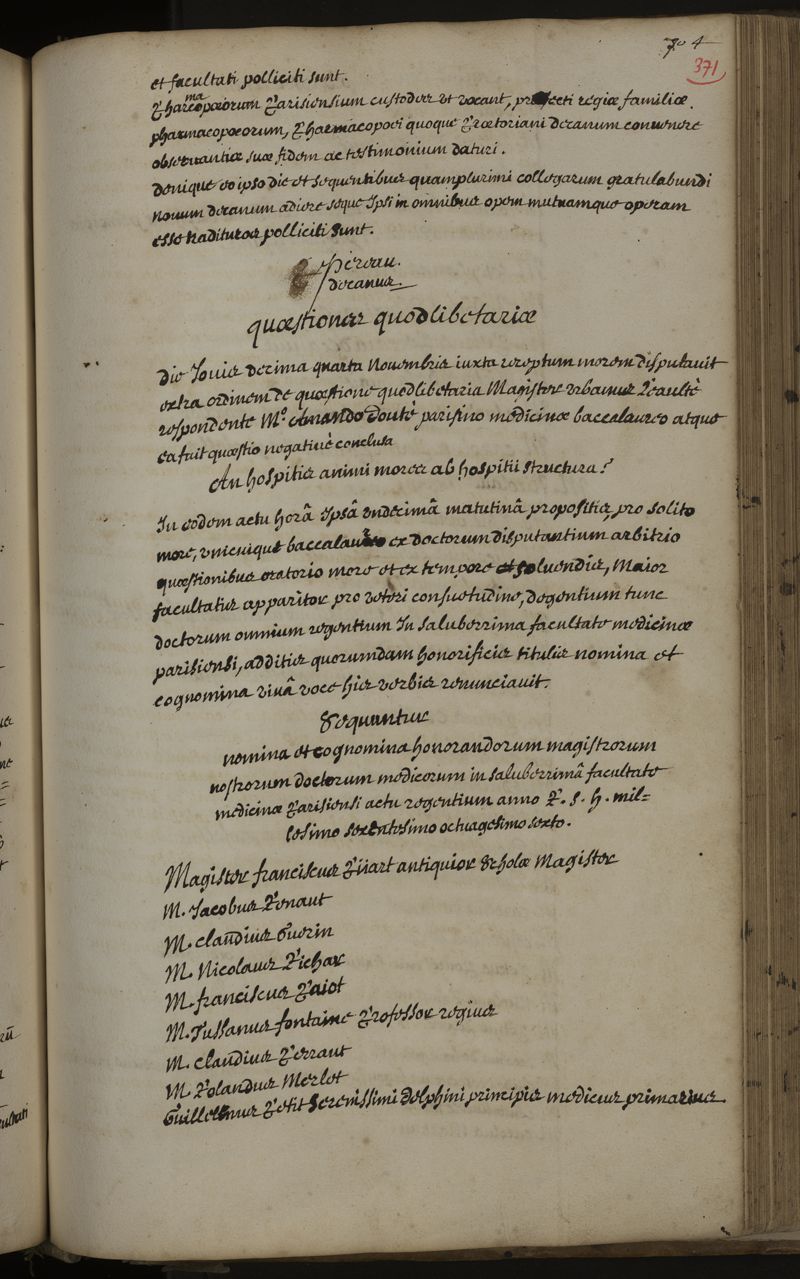 704
371
et facultati polliciti sunt.
Pharmacopoeorum Parisiensium custodes ut vocant, praefecti regiae familiae
pharmacopoeorum, Pharmacopoei quoque Praetoriani decanum convenere
observantiae suae fidem ac testimonium daturi.
denique eo ipso die et sequentibus quamplurimi collegarum gratulabundi
novum decanum adiere seque ipsi in omnibus opem mutuamque operam
esse tradituros polliciti sunt.
decanus
quaestiones quodlibetariae
die Jovis decima quarta Novembris iuxta receptum morem disputavit
extra ordinem de quaestione quodlibetaria Magister urbanus
respondente Mo. Armando Douté parisino medicinae baccalaureo atque
ea fuit quaestio negativè conclusa
An hospitis animi mores ab hospitii structura?
In eodem actu horâ ipsâ undecimâ matutinâ propositis, pro solito
more, unicuique baccalaureo ex doctorum disputantium arbitrio
quaestionibus oratorio more et ex tempore solvendis, Maior
facultatis apparitor pro veteri consuetudine, degentium tunc
doctorum omnium regentium In saluberrima facultate medicinae
parisiensi, additis quorumdam honorificis titulis nomina et
cognomina vivâ voce his verbis renunciavit.
Sequuntur
nomina et cognomina honorandorum magistrorum
nostrorum doctorum medicorum in saluberrimâ facultate
medicinae Parisiensi actu regentium anno R. S. H. mil=
lesimo sexcentesimo octuagesimo sexto.
Magister franciscus Pijart antiquior scholae Magister
M. Jacobus Renaut
M. claudius Guerin
M. Nicolaus Richar
M. franciscus
M. Tussanus fontaine Professor regius
M. claudius Perraut
M. Rolandus Merlot
Guillelmus Petit Serenissimi delphini principis medicus primarius.